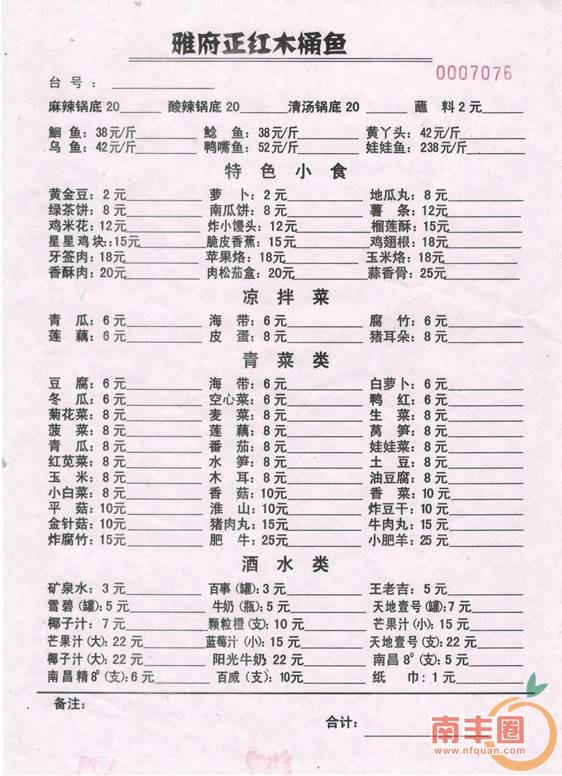 雅府正红木桶鱼
0007076
台 号：
麻辣锅底 20 酸辣锅底 20 清汤锅底 20 蘸 料 2 元
鮰 鱼：38元/斤 鲶 鱼：38元/斤 黄丫头：42元/斤
乌 鱼：42元/斤 鸭嘴鱼：52元/斤 娃娃鱼：238元/斤
特 色 小 食
黄金豆：2 元 萝 卜：2 元 地瓜丸：8 元
绿茶饼：8 元 南瓜饼：8 元 薯 条：12元
鸡米花：12元 炸小馒头：12元 榴莲酥：15元
星星鸡块：:15元 脆皮香蕉：15元 鸡翅根：18元
牙签肉：18元 苹果烙：18元 玉米烙：18元
香酥肉：20元 肉松茄盒：20元 蒜香骨：25元
凉 拌 菜
青 瓜：6 元 海 带：6 元 腐 竹：6 元
莲 藕：6 元 皮 蛋：8 元 猪耳朵：8 元
青 菜 类
豆 腐：6 元 海 带：6 元 白萝卜：6 元
冬 瓜：6 元 空心菜：6 元 鸭 红：6 元
菊花菜：8 元 麦 菜：8 元 生 菜：8 元
菠 菜：8 元 莲 藕：8 元 莴 笋：8 元
青 瓜：8 元 番 茄：8 元 娃娃菜：8 元
红苋菜：8 元 水 笋：8 元 土 豆：8 元
玉 米：8 元 木 耳：8 元 油豆腐：8 元
小白菜：8 元 香 菇：10 元 香 菜：10 元
平 菇：10元 淮 山：10元 炸豆干：10 元
金针菇：10元 猪肉丸：15元 牛肉丸：15 元
炸腐竹：15元 肥 牛：25元 小肥羊：25 元
酒 水 类
矿泉水：3 元 百事（罐）：3 元 王老吉：5 元
雪碧（罐）：5 元 牛奶（瓶）：5 元 天地壹号（罐）：7 元
椰子汁：7 元 颗粒橙（支）：10 元 芒果汁（小）：15 元
芒果汁（大）：22 元 蓝莓汁（小）：15 元 天地壹号（支）：22 元
椰子汁（大）：22 元 阳光牛奶 22 元 南昌8⁰（支）：8 元
南昌精8⁰（支）：6 元 百威（支）：10元 纸 巾：1 元
备注：
合计：
南丰圈
www.nfquan.com